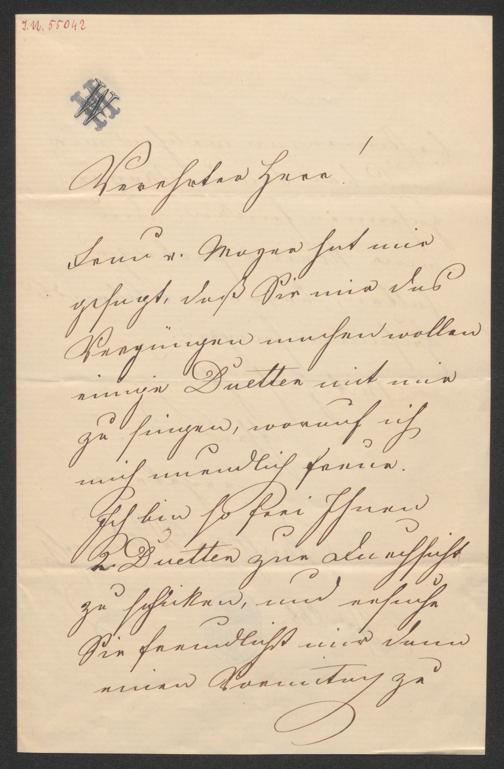 I.N. 55042
Verehrter Herr!
Frau v. Mayer hat mir
gesagt, daß Sie mir das
Vergnügen machen wollen
einige Duetten mit mir
zu singen, worauf ich
mich unendlich freue.
Ich bin so frei Ihnen
2 Duetten zur Durchsicht
zu schicken, und ersuche
Sie freundlichst mir dann
einen Vormittag zu